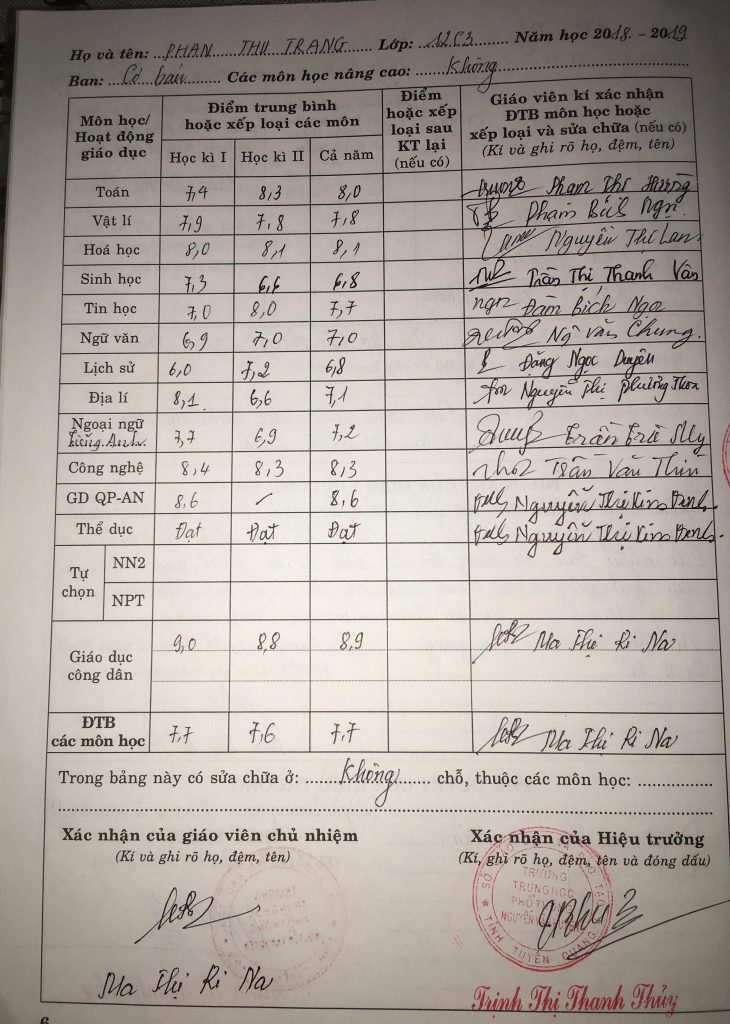 Họ và tên: PHAN THU TRANG Lớp: 12C3 Năm học 2018 - 2019
Ban: Cơ bản Các môn học nâng cao: Không
Môn học/ Hoạt động giáo dục
Điểm trung bình hoặc xếp loại các môn
Học kì I Học kì II Cả năm
Điểm hoặc xếp loại sau KT lại (nếu có)
Giáo viên kí xác nhận ĐTB môn học hoặc xếp loại và sửa chữa (nếu có) (Kí và ghi rõ họ, đệm, tên)
Toán 7,4 8,3 8,0 Phạm Thị Hường
Vật lí 7,9 7,8 7,8 Phạm Bích Ngọc
Hoá học 8,0 8,1 8,1 Nguyễn Thị Lan
Sinh học 7,3 6,6 6,8 Trần Thị Thanh Vân
Tin học 7,0 8,0 7,7 Đàm Bích Ngọc
Ngữ văn 6,9 7,0 7,0 Ngô Văn Chung.
Lịch sử 6,0 7,2 6,8 Đặng Ngọc Duyên
Địa lí 8,1 6,6 7,1 Nguyễn Thị Phương Thoa
Ngoại ngữ Tiếng Anh 7,7 6,9 7,2 Trần Trà My
Công nghệ 8,4 8,3 8,3 Trần Văn
GD QP-AN 8,6 / 8,6 Nguyễn Thị Kim
Thể dục Đạt Đạt Đạt Nguyễn Thị Kim
Tự chọn
NN2
NPT
Giáo dục công dân 9,0 8,8 8,9 Ma Thị Ri Na
ĐTB các môn học 7,7 7,6 7,7 Ma Thị Ri Na
Trong bảng này có sửa chữa ở: Không chỗ, thuộc các môn học:
Xác nhận của giáo viên chủ nhiệm
(Kí và ghi rõ họ, đệm, tên)
Xác nhận của Hiệu trưởng
(Kí, ghi rõ họ, đệm, tên và đóng dấu)
TRƯỜNG
TRUNG HỌC
PHỔ THÔNG
TỈNH TUYÊN QUANG
Ma Thị Ri Na
Trịnh Thị Thanh Thủy
6